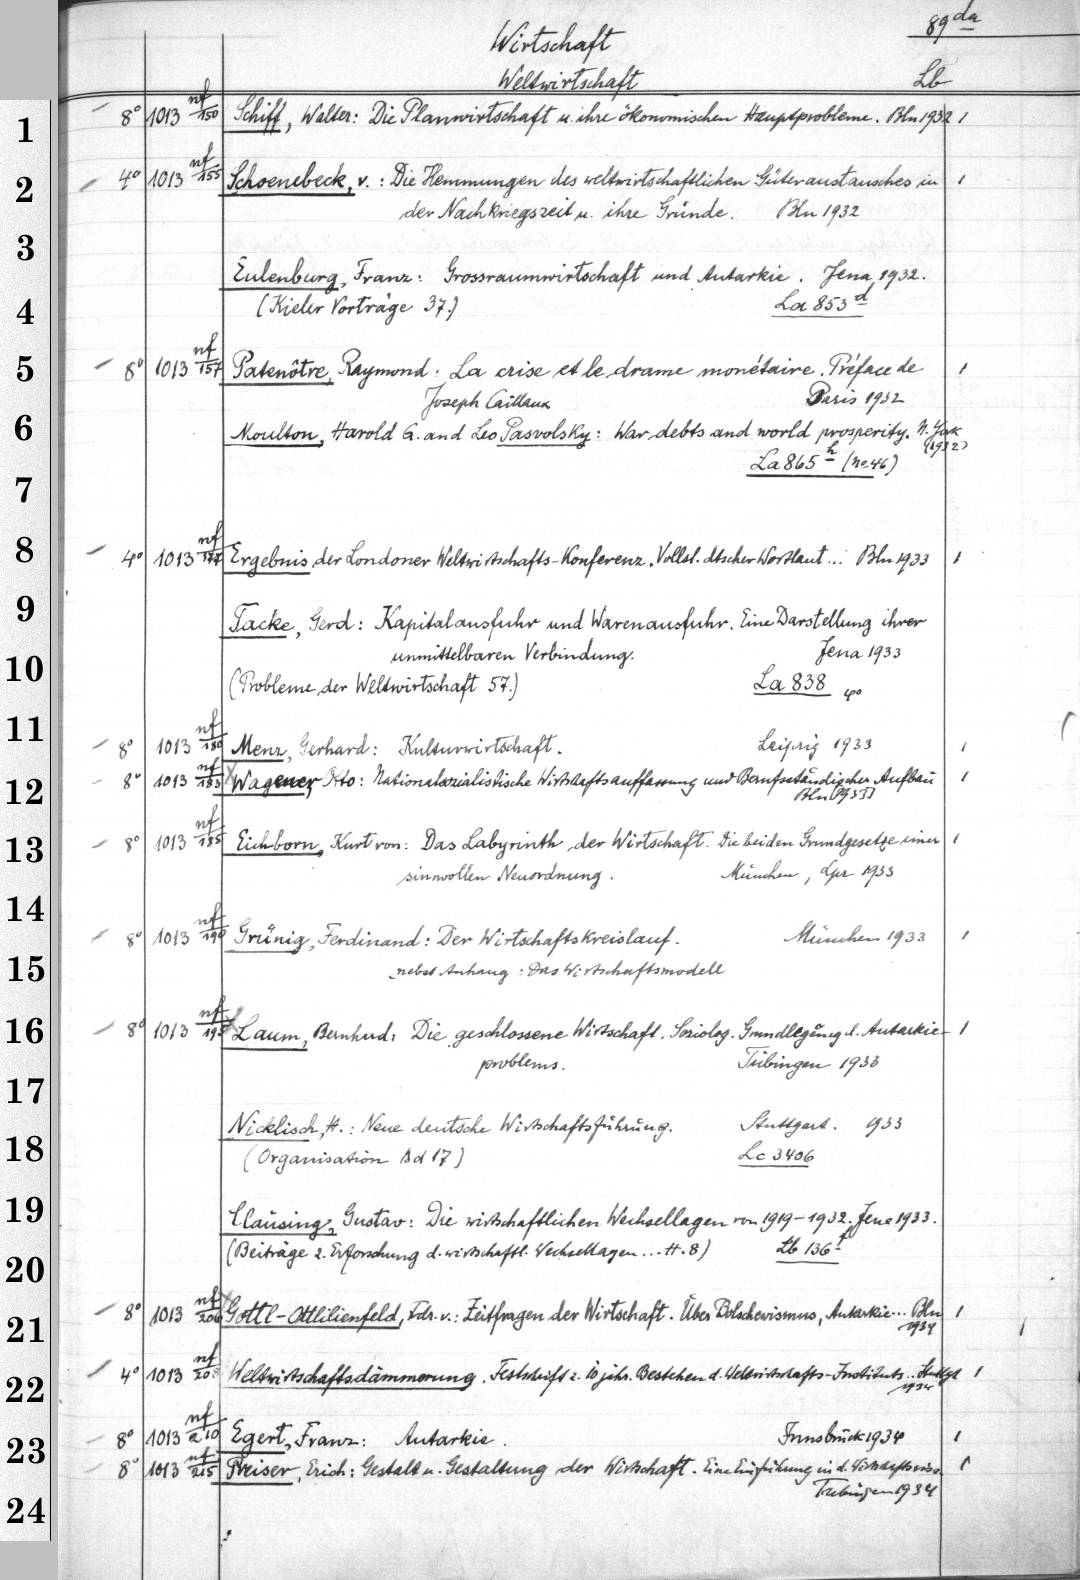 89 da
Wirtschaft
Weltwirtschaft Lb
1 8° 1013 nf/150 Schiff, Walter: Die Planwirtschaft u. ihre ökonomischen Hauptprobleme. Bln 1932 1
2 4° 1013 nf/155 Schoenebeck, v.: Die Hemmungen des weltwirtschaftlichen Güteraustausches in 1
der Nachkriegszeit u. ihre Gründe. Bln 1932
3
Eulenburg, Franz: Grossraumwirtschaft und Autarkie. Jena 1932.
4 (Kieler Vorträge 37.) La 853 d
5 8° 1013 nf/157 Patenôtre, Raymond: La crise et le drame monétaire. Préface de 1
Joseph Caillaux Paris 1932
6 Moulton, Harold G. and Leo Pasvolsky: War debts and world prosperity. N. York
(1932)
La 865 h (no. 46)
7
8 4° 1013 nf/177 Ergebnis der Londoner Weltwirtschafts-Konferenz. Vollst. dtscher Wortlaut... Bln 1933 1
9 Tacke, Gerd: Kapitalausfuhr und Warenausfuhr. Eine Darstellung ihrer
10 unmittelbaren Verbindung. Jena 1933
(Probleme der Weltwirtschaft 57.) La 838 4°
11 8° 1013 nf/180 Menz, Gerhard: Kulturwirtschaft. Leipzig 1933 1
12 8° 1013 nf/183 Wagener, Otto: Nationalsozialistische Wirtschaftsauffassung und Berufsständischer Aufbau 1
Bln [1933]
13 8° 1013 nf/185 Eichborn, Kurt von: Das Labyrinth der Wirtschaft. Die beiden Grundgesetze einer 1
sinnvollen Neuordnung. München, Lpz 1933
14
8° 1013 nf/190 Grünig, Ferdinand: Der Wirtschaftskreislauf. München 1933 1
15 nebst Anhang: Das Wirtschaftsmodell
16 8° 1013 nf/195 Laum, Bernhard: Die geschlossene Wirtschaft. Soziolog. Grundlegung d. Autarkie- 1
problems. Tübingen 1933
17
Nicklisch, H.: Neue deutsche Wirtschaftsführung. Stuttgart. 1933
18 (Organisation Bd 17) Lc 3406
19 Clausing, Gustav: Die wirtschaftlichen Wechsellagen von 1919-1932. Jena 1933.
20 (Beiträge z. Erforschung d. wirtschaftl. Wechsellagen... H. 8) Lb 136 f
21 8° 1013 nf/206 Gottl-Ottlilienfeld, Fdr. v.: Zeitfragen der Wirtschaft. Über Bolschewismus, Autarkie... Bln 1
1934
22 4° 1013 nf/208 Weltwirtschaftsdämmerung. Festschrift z. 10 jähr. Bestehen d. Weltwirtschafts-Instituts.. Stuttgt 1
1934
23 8° 1013 nf/210 Egert, Franz: Autarkie. Innsbruck 1934 1
8° 1013 nf/215 Preiser, Erich: Gestalt u. Gestaltung der Wirtschaft. Eine Einführung in d. Wirtschaftswiss. 1
24 Tübingen 1934